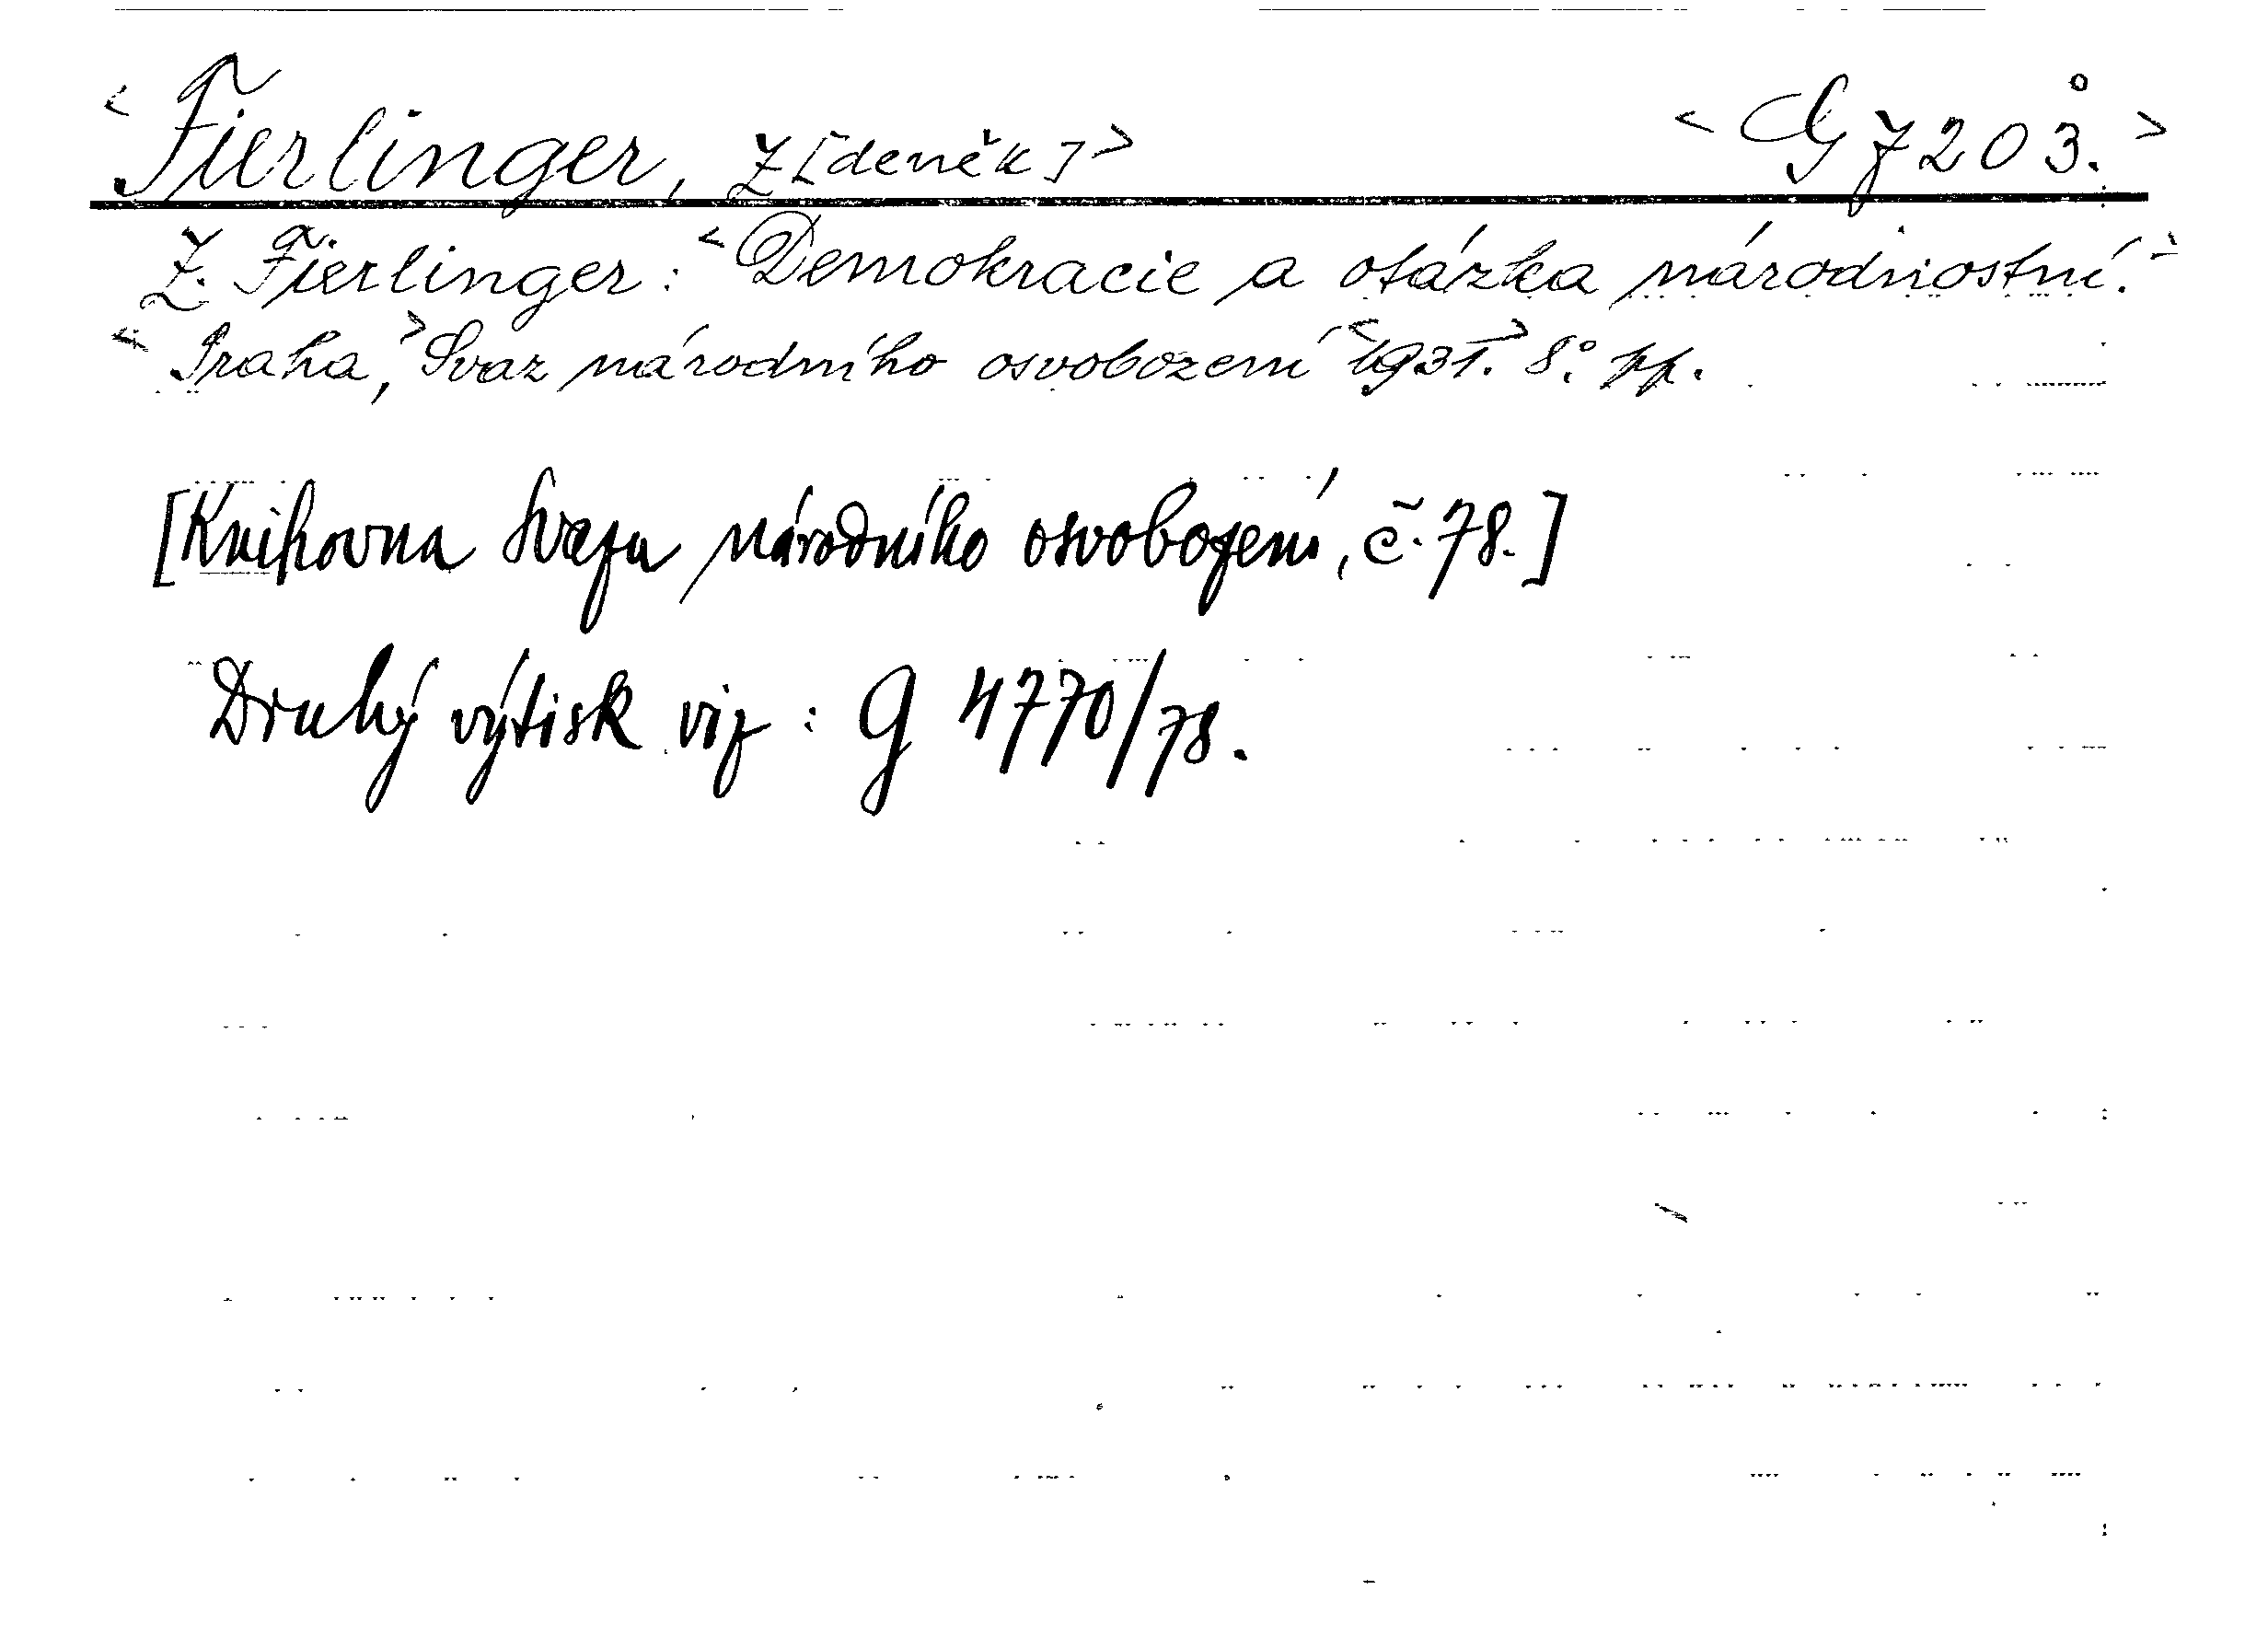 < Fierlinger, Z[deněk] > < G 7203. >
Z. Fierlinger: < Demokracie a otázka národnostní. >
< Praha, > Svaz národního osvobození < 1931. > 8°. pp.
[Knihovna Svazu národního osvobození, č. 78.]
Druhý výtisk viz: G 4770/78.